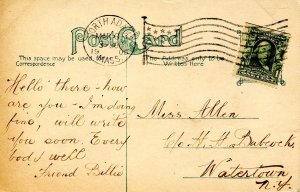 Post Card
NORTH ADAMS
MASS.
This space may be used for
Correspondence
The Address only to be
Written Here
Hello there - how
are you - I'm doing
fine, will write
you soon. Every
body well
Friend Billie
Miss Allen
c/o H. H. Babcock,
Watertown
N.Y.